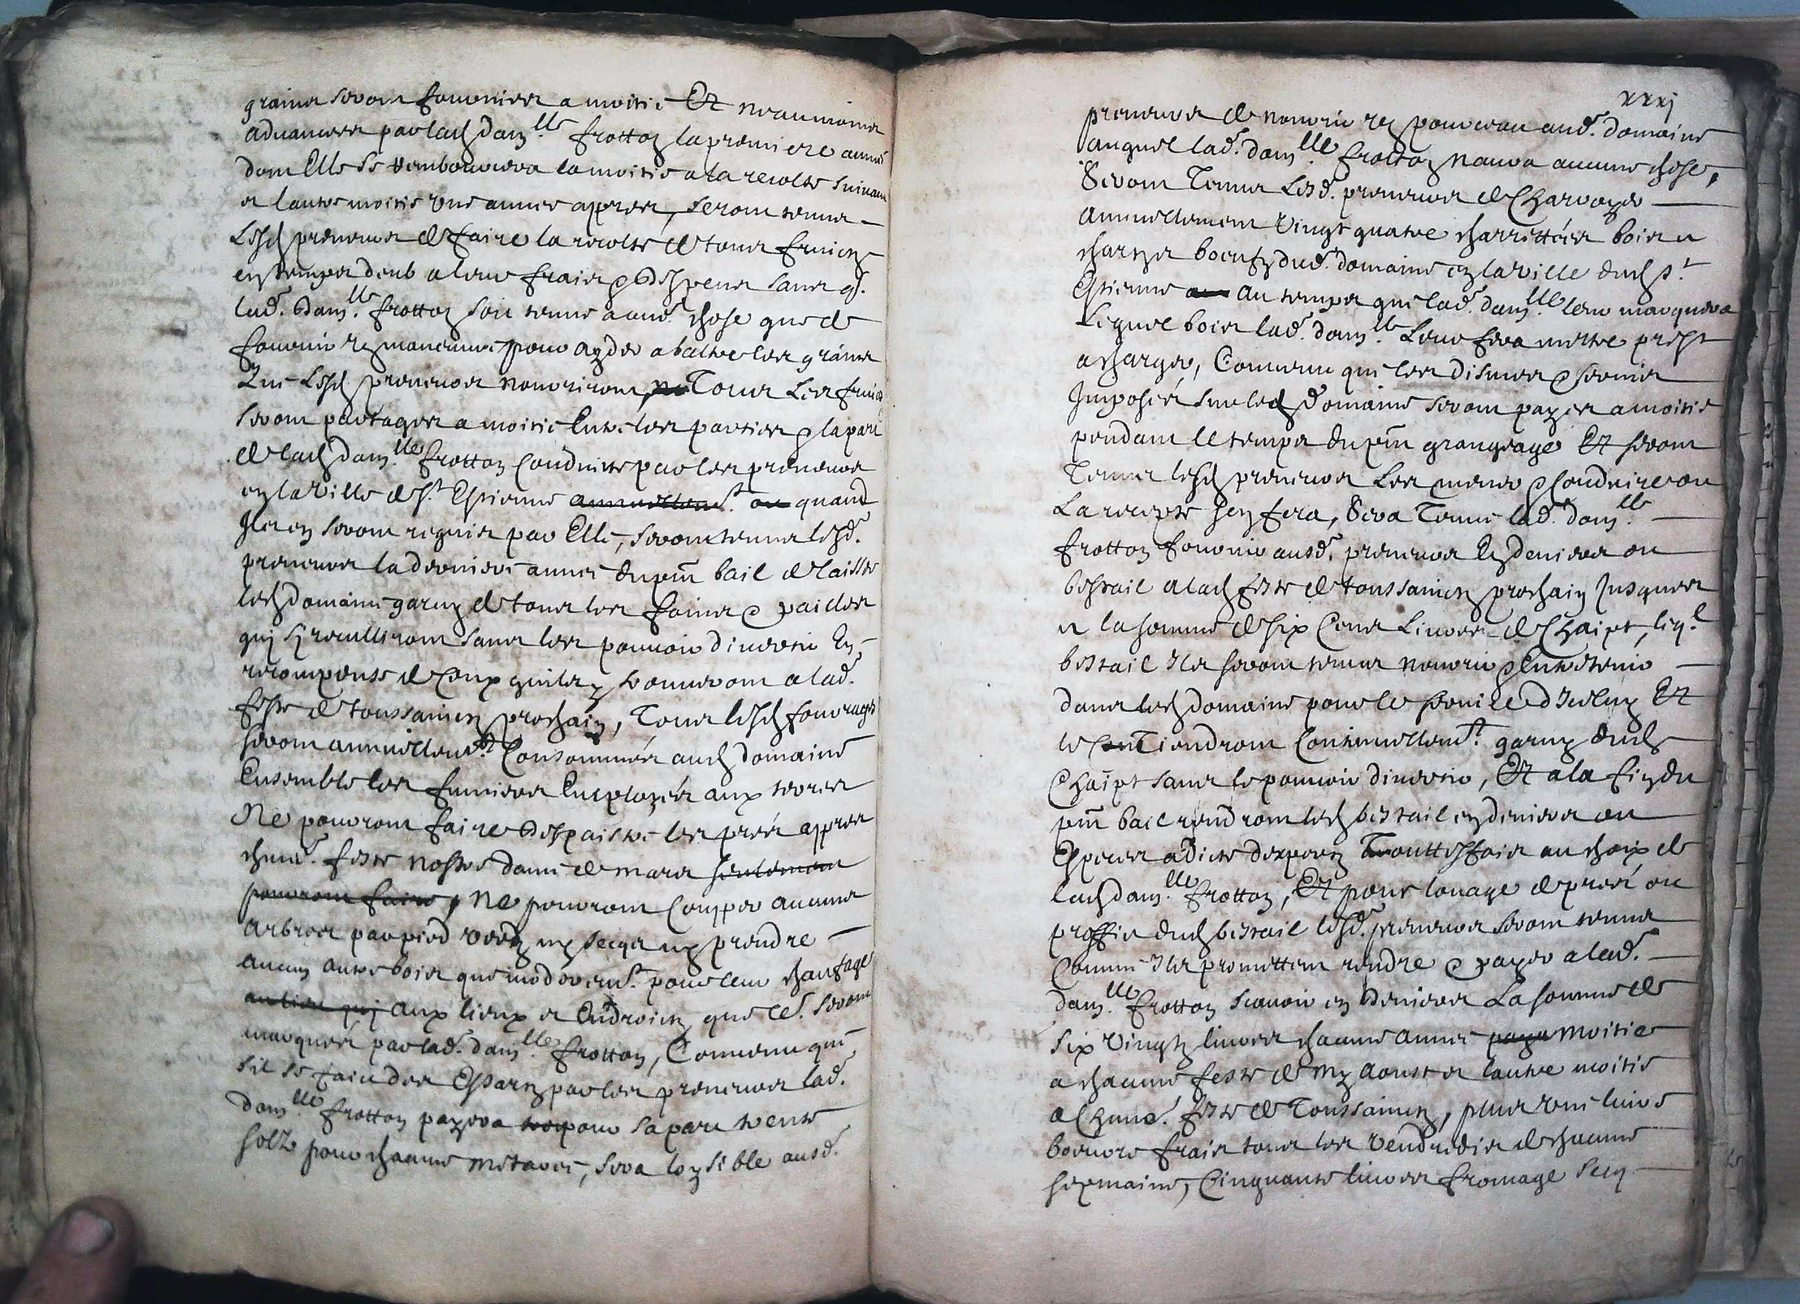 graines seront fournies a moitie Et neaumoings
aduancees par lad dam.lle frotton la premiere annee
dont Elle se remboursera la moitie a la recolte suiuant
et lautre moitie une annee appres, seront tenus
Lesd preneurs de faire la recolte de tous fruictz
en temps deub a leurs fraiz & despens sans q.
lad. dam.lle frotton soit tenue a autr chose que de
fournir ung manoeuure pour ayder a battre les graines
Que Lesd preneurs nourriront, Tous Les fruictz
seront partages a moitie Entre les parties & la part
de lad dam.lle frotton Conduitte par les preneurs
en la ville de St Estienne annuellem.t ou quand
Ilz en seront requis par Elle, seront tenus lesd.
preneurs la derniere annee du pnt bail de laisser
led domaine garny de tous les foings & pailles
qui sy reculliront sans les pouuoir diuertir En
recompense de Ceux quilz y trouueront a lad.
feste de toussainctz prochain, Tous lesd fourages
seront annuellem.t Consommes aud domaine
Ensemble les fumiers Employés aux terres
Ne pouront faire despaistre les prés appres
chune. feste nostre dame de mars seulement
pouront faire, Ne pouront Couper aucuns
arbres par pied verdz ny secqs ny prendre
aucun autre bois que moderem.t pour leur chaufage
au lieu qui aux lieux et Endroictz que le.r seront
marqués par lad. dam.lle frotton, Conuenu que
sil se faict des Essartz par les preneurs lad.
dam.lle frotton payera pour sa part trente
solz pour chacune metanee, sera loysible ausd.
xxxj
preneurs de nourrir ung pourceau aud. domaine
auquel lad. dam.lle frotton naura aucune chose,
Seront Tenus Lesd. preneurs de Charroyer
annuellement vingt quatre charrettées bois a
charger boeufz dud. domaine en la ville dud St
Estienne au temps que lad. dam.lle leur marquera
Lequel bois lad. dam.lle Leur fera mettre prest
a charger, Conuenu que les dismes & seruis
Imposés sur led domaine seront payes a moitie
pendant le temps du pnt grangeage Et seront
Tenus lesd preneurs Les mener & conduire ou
La recepte sen fera, Sera Tenue lad. dam.lle
frotton fournir ausd. preneurs En deniers ou
bestail a lad feste de toussainctz prochain Jusques
a la somme de six Cens Liures de Chaipt, leq.l
bestail Ilz seront tenus nourrir & Entretenir
dans led domaine pour le seruice dIceluy Et
le Tiendront Continuellem.t garny dud
Chaipt sans le pouuoir diuertir, Et a la fin du
pnt bail rendront led bestail en deniers ou
Especes a dicte dexpertz Touttesfois au choix de
lad dam.lle frotton, Et pour louage de prest ou
proffit dud bestail lesd. preneurs seront tenus
Comme Ilz promettent rendre & payer a lad.
dam.lle frotton scauoir en deniers La somme de
six vingtz liures chacune annee paya moitie
a chacune feste de my aoust et lautre moitie
a Chune. feste de Toussainctz, plus une liure
beurre frais tous les vendredis de chacune
sepmaine, Cinquante liures fromage secq